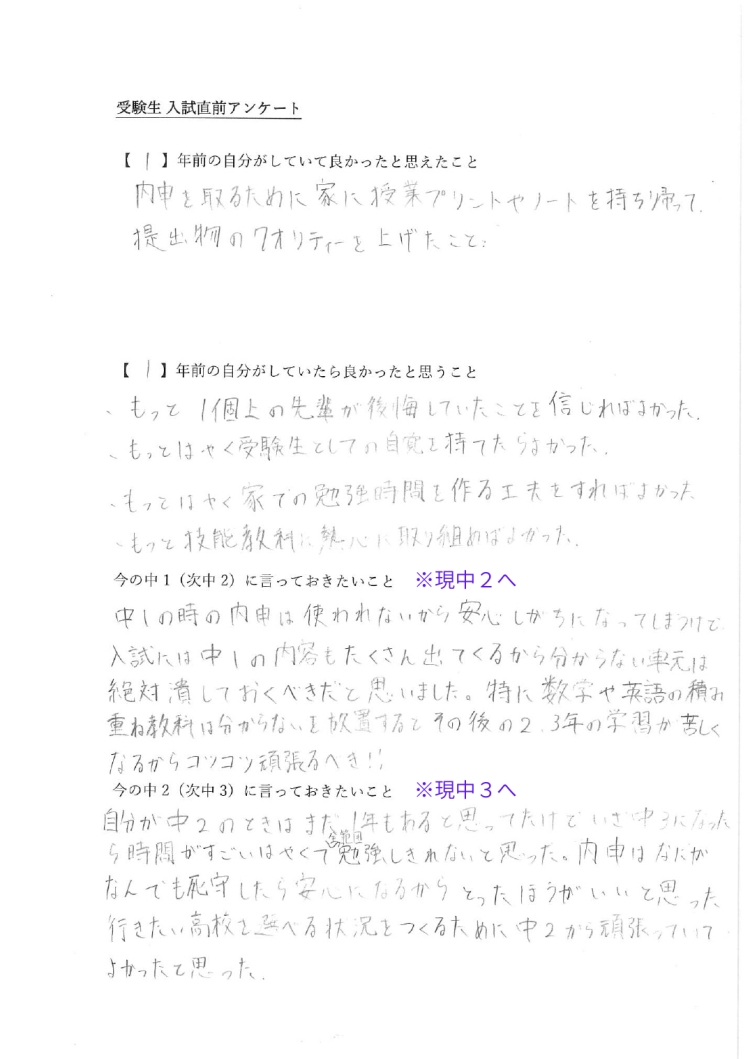 受験生 入試直前アンケート
【 1 】年前の自分がしていて良かったと思えたこと
内申を取るために家に授業プリントやノートを持ち帰って、
提出物のクオリティーを上げたこと。
【 1 】年前の自分がしていたら良かったと思うこと
、もっと1個上の先輩が後悔していたことを信じればよかった。
、もっとはやく受験生としての自覚を持てたらよかった。
、もっとはやく家での勉強時間を作る工夫をすればよかった
、もっと技能教科に熱心に取り組めばよかった。
今の中1（次中2）に言っておきたいこと ※現中2へ
中1の時の内申は使われないから安心しがちになってしまうけど
入試には中1の内容もたくさん出てくるから分からない単元は
絶対潰しておくべきだと思いました。特に数学や英語の積み
重ね教科は分からないを放置するとその後の2、3年の学習が苦しく
なるからコツコツ頑張るべき!!
今の中2（次中3）に言っておきたいこと ※現中3へ
自分が中2のときはまだ1年もあると思ってたけどいざ中3になった
ら時間がすごいはやくて全範囲勉強しきれないと思った。内申はなにが
なんでも死守したら安心になるからとったほうがいいと思った
行きたい高校を選べる状況をつくるために中2から頑張っていて
よかったと思った。